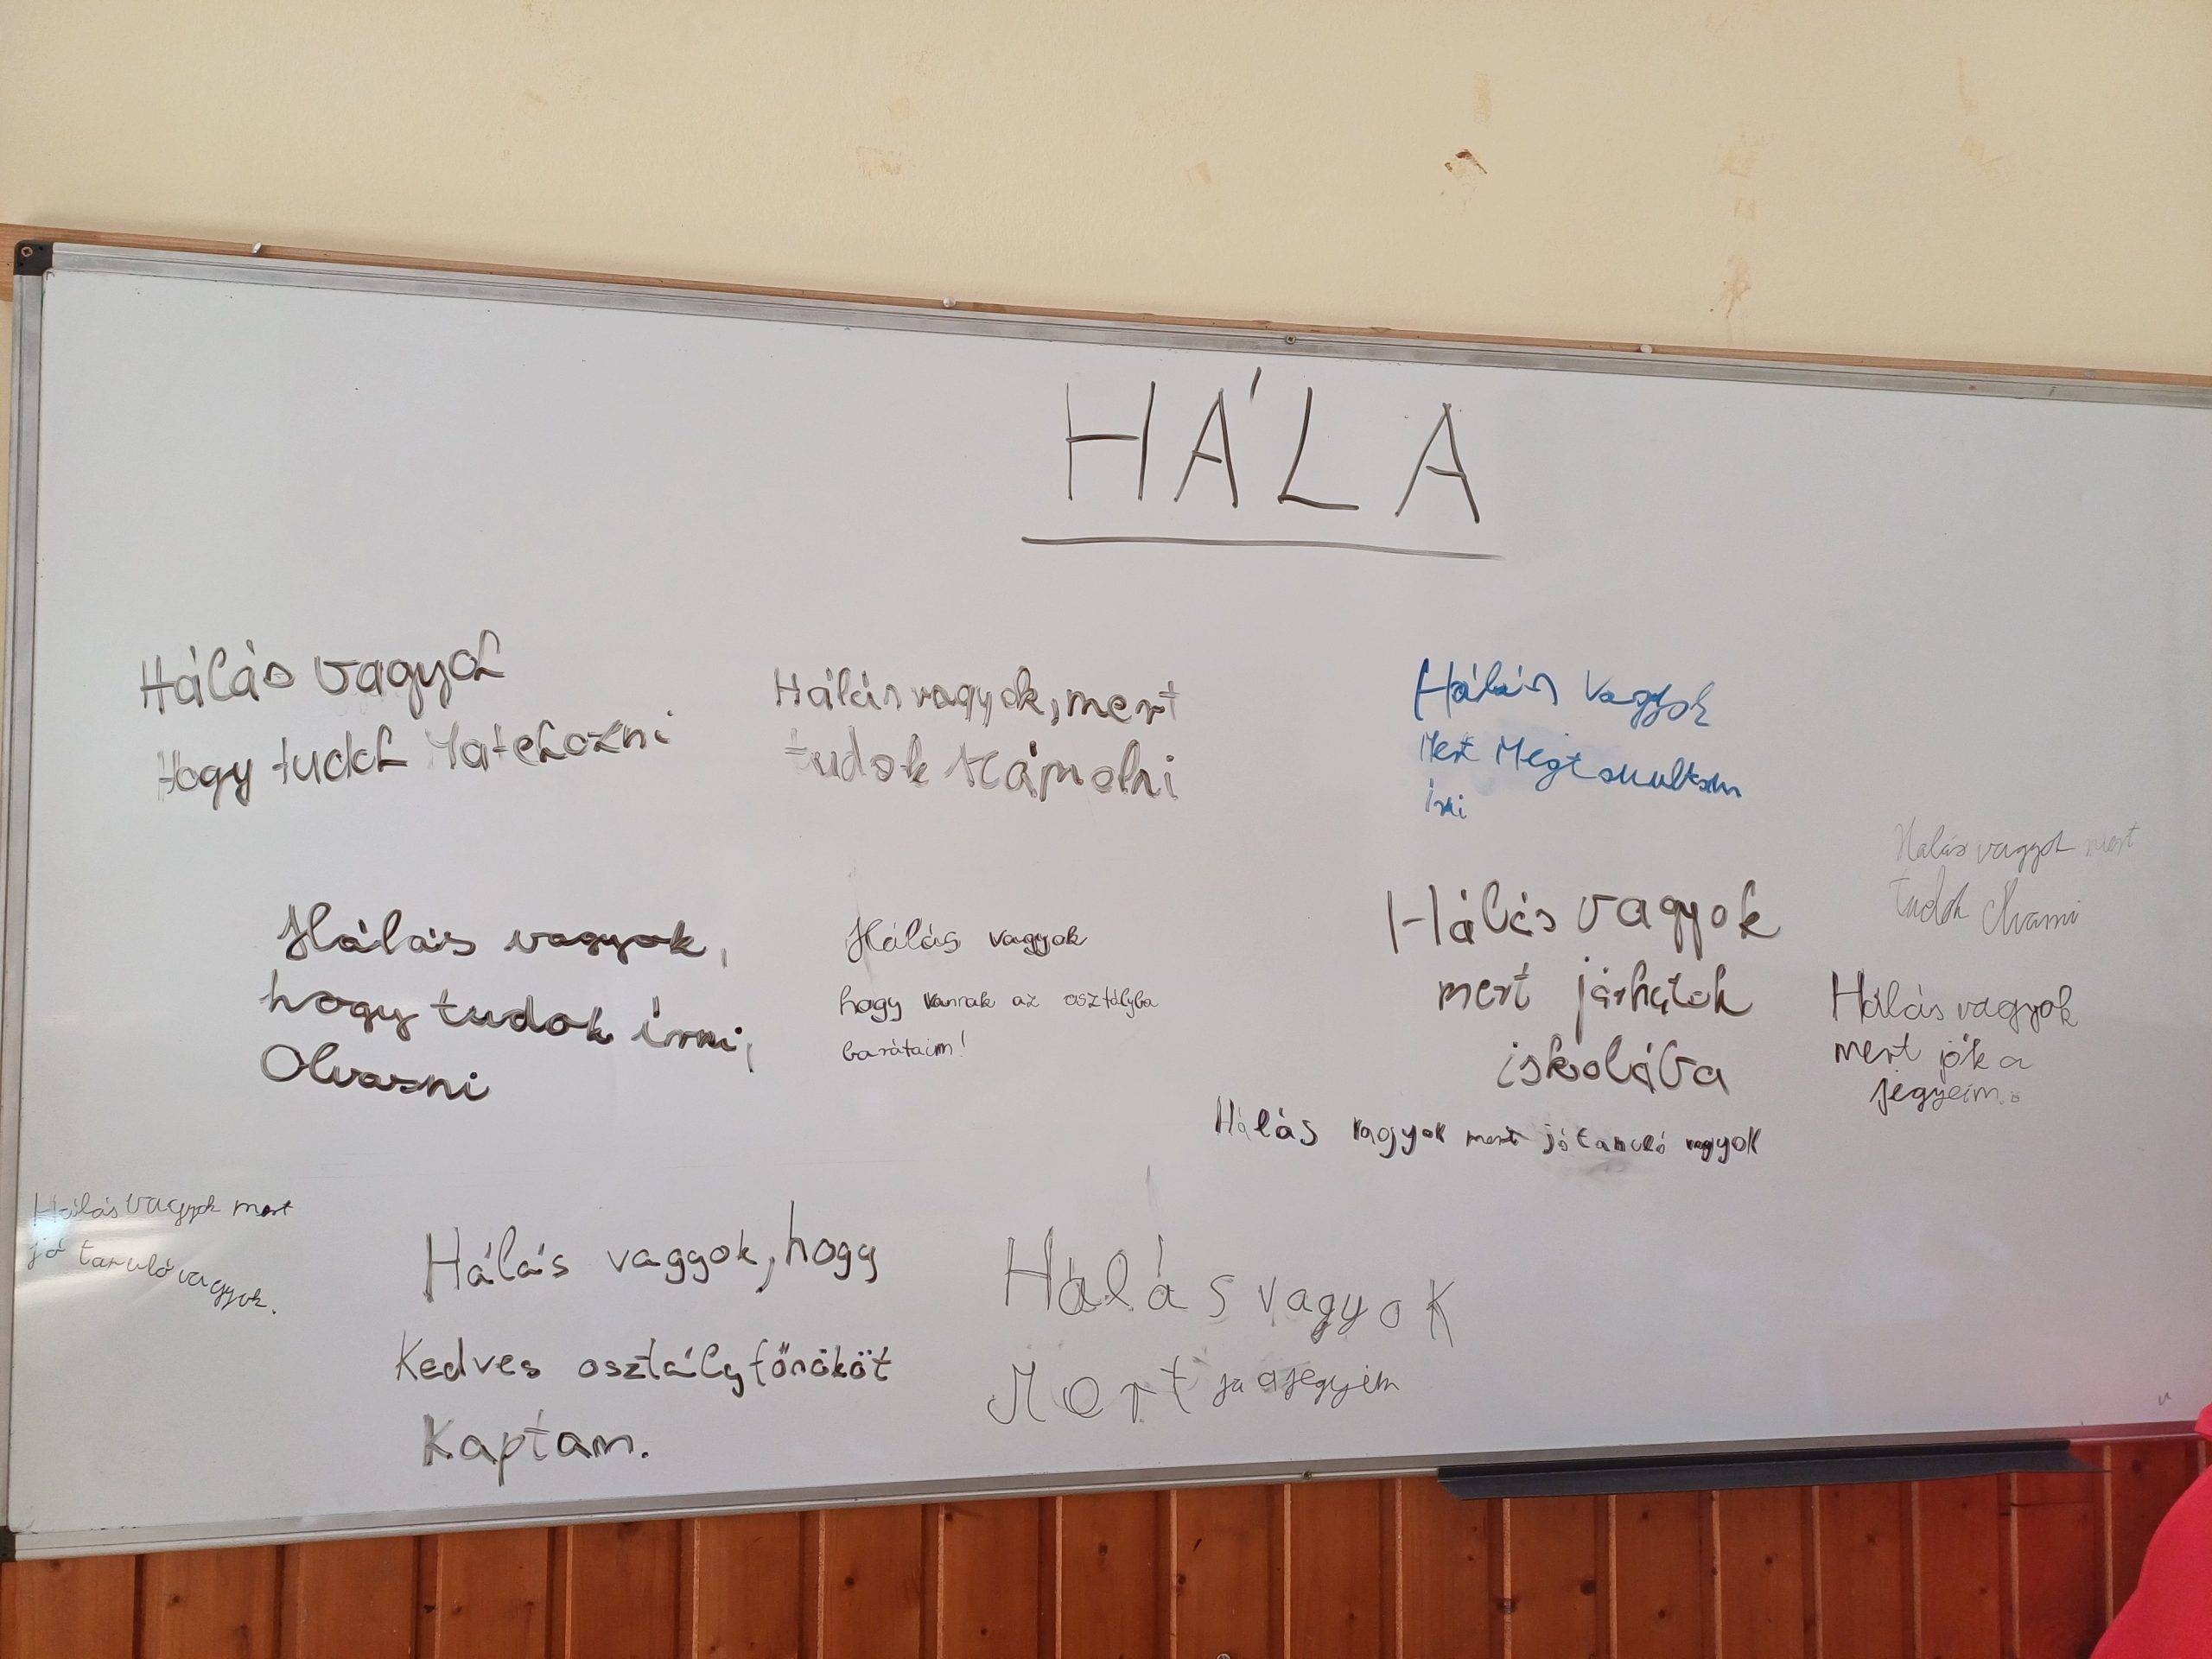 HÁLA
Hálás vagyok
Hogy tudok Játékozni
Hálás vagyok, mert
tudok számolni
Hálás Vagyok
Mert Megtanultam
írni
Hálás vagyok mert
tudok Olvasni
Hálás vagyok,
hogy tudok írni,
Olvasni
Hálás vagyok
hogy vannak az osztályba
barátaim!
Hálás vagyok
mert járhatok
iskolába
Hálás vagyok
mert jók a
jegyeim.
Hálás vagyok mert jó tanuló vagyok
Hálás vagyok mert
jó tanuló vagyok.
Hálás vagyok, hogy
Kedves osztályfőnököt
Kaptam.
Hálás vagyok
Mert ja ajegyim